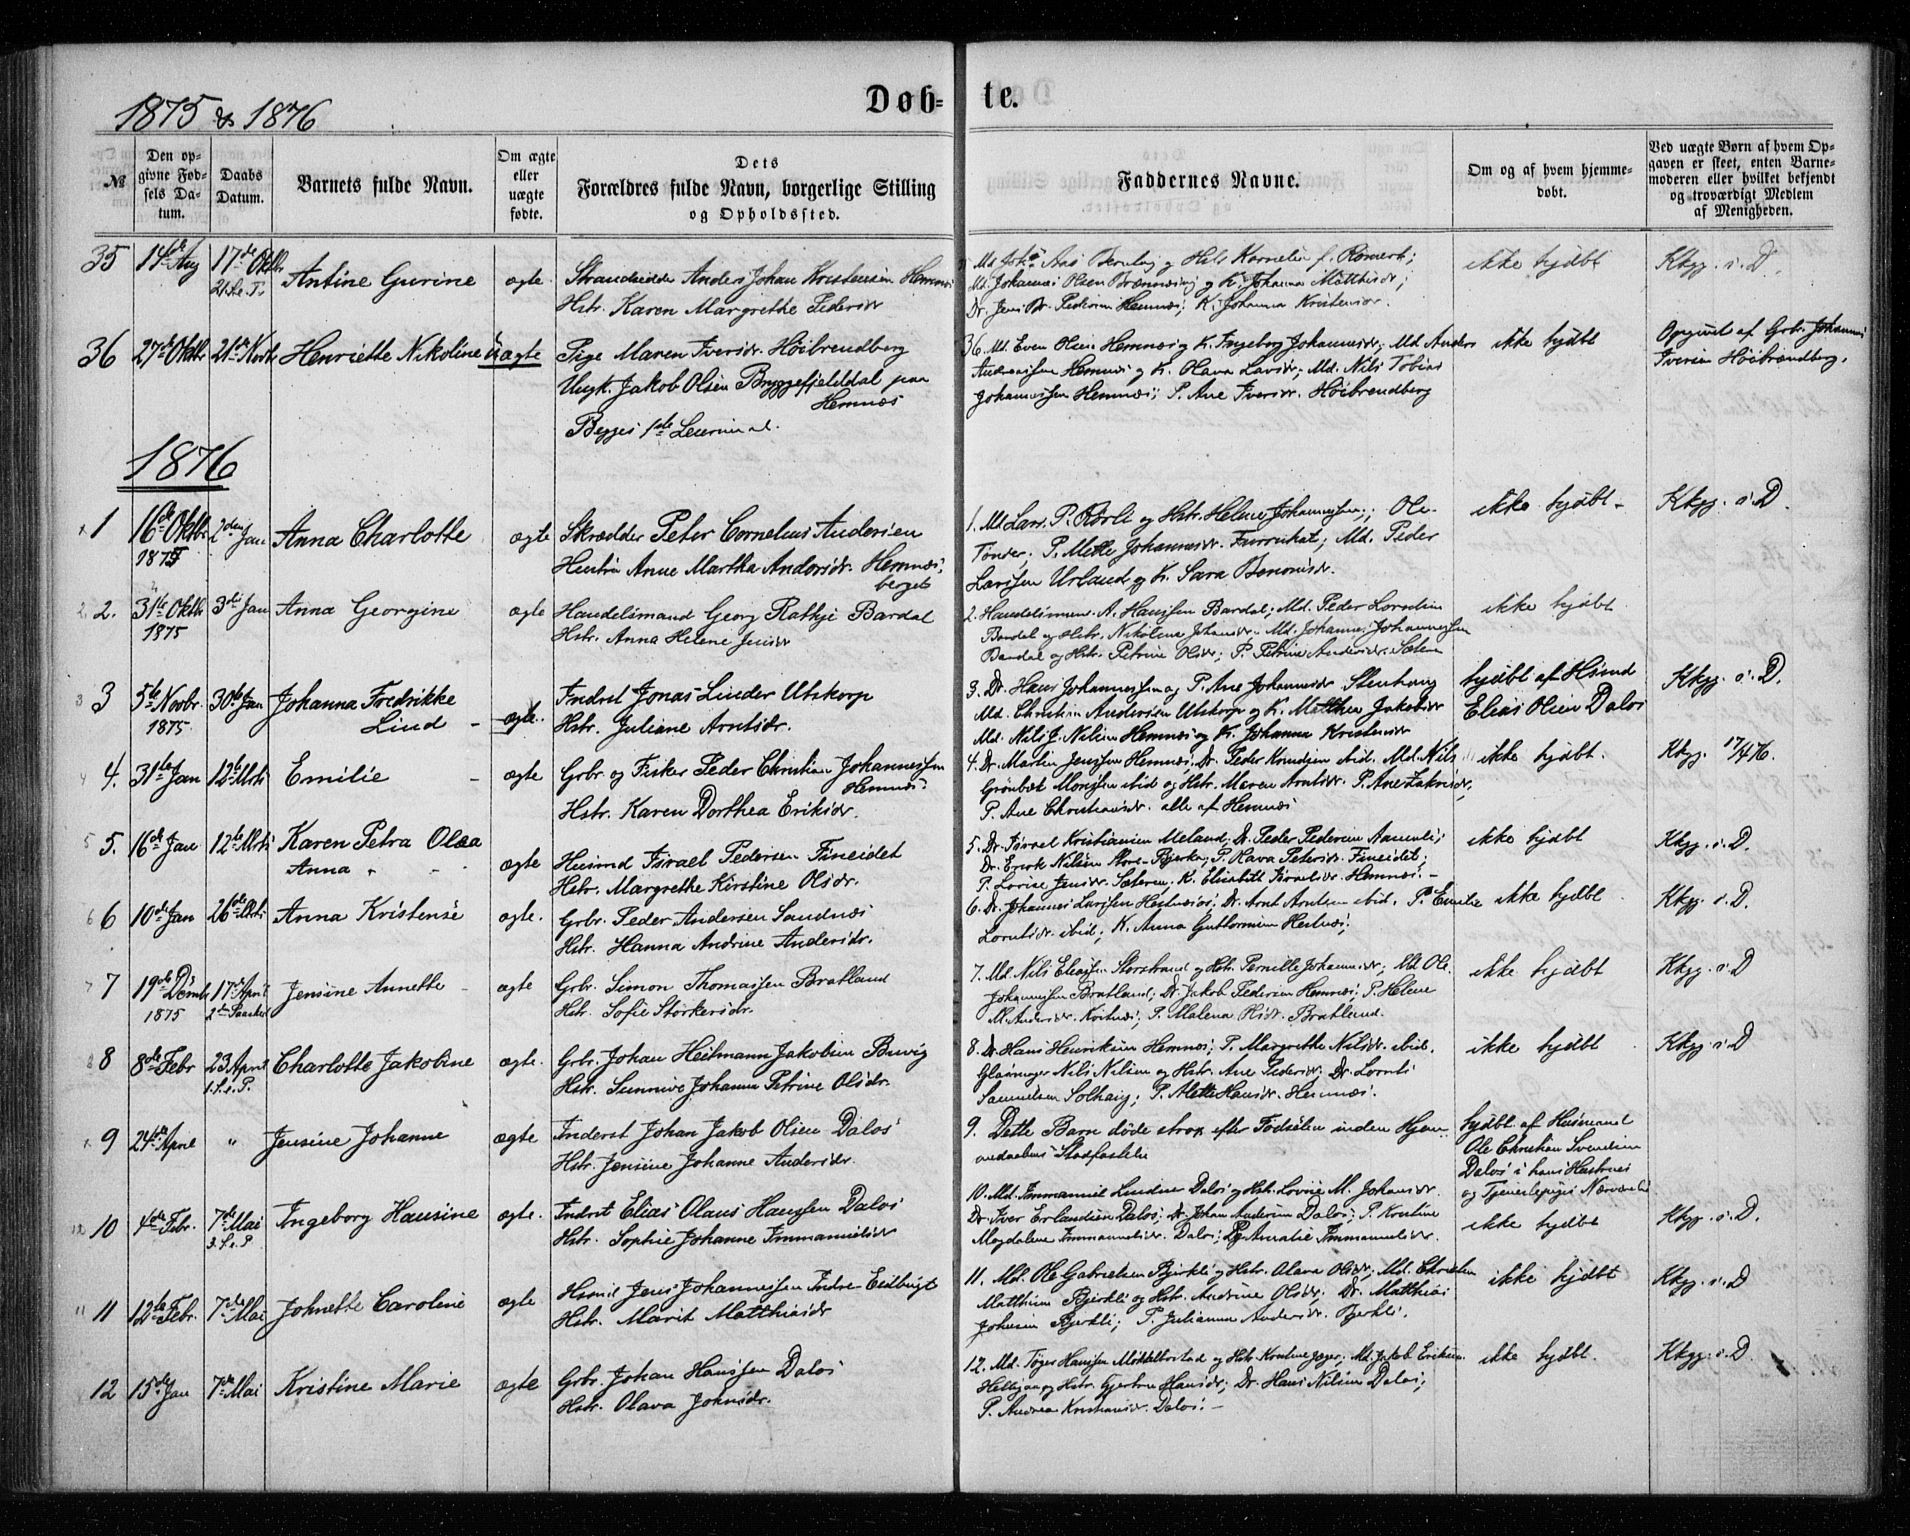 1875 & 1876
Døb- te.
№
Den opgivne Fødsels Datum.
Daabs Datum.
Barnets fulde Navn.
Om ægte eller uægte fødte.
Dets Forældres fulde Navn, borgerlige Stilling og Opholdssted.
Faddernes Navne.
Om og af hvem hjemmedøbt.
Ved uægte Børn af hvem Opgaven er skeet, enten Barnemoderen eller hvilket bekjendt og troværdigt Medlem af Menigheden.
35 14de Aug 17de Oktbr Antine Gurine ægte Strandsidder Anders Johan Kristensen Hemnæs
Hstr. Karen Margrethe Pedersdr
Md. Johannes Olsen
Dr. Jens Pedersen Hemnæs; K. Johanna Kristensdr.
ikke hjdbt
Kkgg. s. D.
36 27de Oktbr 21de Novbr Henriette Nikoline uægte Pige Maren Iversdr. Høibrendberg
Ungk. Jakob Olsen Bryggefjelddal paa
Hemnæs
Begges 1ste Leiermaal.
36. Md. Even Olsen Hemnæs og K. Ingeborg Johannesdr; Md. Anders
Andreassen Hemnæs og K. Olava Larsdr; Md. Nils Tobias
Johannessen Hemnæs; P. Ane Iversdr. Høibrendberg
ikke hjdbt
Opgivet af Grbr. Johannes
Iversen Høibrendberg.
1876
1 16de Oktbr 1875 2den Jan Anna Charlotte ægte Skrædder Peter Cornelius Andersen
Hustru Anne Martha Andersdr. Hemnæs-
berget
1. Md. Lars P. Rørli og Hstr. Helene Johannessen; Ole
Tønder, P. Mette Johannesdr. ; Md. Peder
Larssen Urland og K. Sara Benonisdr.
ikke hjdbt
Kkgg. s. D.
2. 31te Oktbr 1875 3die Jan Anna Georgine ægte Handelsmand Georg Rathje Bardal
Hstr. Anna Helene Jensdr
2. Handelsmand A. Hanssen Bardal; Md. Peder Lorntsen
Bardal og Hstr. Nikolina Johansdr. Md. Johannes Johannessen
Bardal og Hstr. Petrine Olsdr; P. Petrine Andersdr. Sæteren
ikke hjdbt
3 5te Novbr. 1875 30te Jan Johanna Fredrikke
Lind - ægte. Inderst Jonas Linder Utskarp
Hstr. Juliane Arntsdr.
3. Dr. Hans Johannessen og P. Ane Johannesdr Stenhaug
Md. Christian Andersen Utskarp og K. Matthea Jakobsdr
Md. Nils J. Nilsen Hemnæs og K. Johanna Kristensdr
hjdbt af Hsmd
Elias Olsen Dalos
Kkgg. s. D.
4. 31te Jan 12te Mrts Emilie - ægte. Grbr og Fisker Peder Christian Johannessen
Hemnæs
Hstr. Karen Dorthea Eriksdr.
4. Dr. Martin Jenssen Hemnæs, Dr. Peder Knudsen ibid. Md. Nils
Grønbek Monssen ibid og Hstr. Maren Arntsdr. P. Ane Isaksdr,
P. Ane Christiansdr. alle af Hemnæs
ikke hjdbt.
Kkgg. 17/4 76.
5. 16de Jan 12te Mrts Karen Petra Olea
Anna - - ægte Husmd Israel Pedersen Fineidet
Hstr. Margrethe Kirstine Olsdr.
5. Dr. Israel Kristiansen Meland; Dr. Peder Pedersen
Dr. Enok Nilsen Store-Bjerka; P. Hava Petersdr. Fineidet;
P. Lovise Jensdr. Sæteren. K. Elisabeth Israelsdr. Hemnæs. -
ikke hjdbt
Kkgg. s. D.
6 10de Jan 26de Mrts Anna Kristense ægte. Grbr. Peder Andersen Sandnæs
Hstr. Hanna Andrine Andersdr.
6. Dr. Johannes Larssen Hestnæsøs; Dr. Arnt Arntsen ibid. P. Emilie
Lorntsdr. ibid; K. Anna Guttormsen Hestnæs;
ikke hjdbt
Kkgg. s. D.
7 19de Dcmbr 1875 17de April 2den Paaskedag Jensine Annette - ægte Grbr. Simon Thomassen Bratland
Hstr. Sofie Størkersdr.
7. Md. Nils Eliassen Storstrand og Hstr. Pernille Johannesdr; Md Ole
Johannessen Bratland; Dr. Jakob Pedersen Hemnæs; P. Helene
M. Andersdr. ; P. Malena Olsdr. Bratland.
ikke hjdbt
Kkgg. s. D
8 8de Febr 23 April 1. S. e. P. Charlotte Jakobine ægte. Grbr. Johan Heitmann Jakobsen Buvig
Hstr. Sunnive Johanna Petrine Olsdr.
8. Dr Hans Henriksen Hemnæs; P. Margrethe Nilsdr. ibid.
Nils Nilsen og Hstr. Ane Pedersdr; Dr. Lornts
Samuelsen Solhaug; P. Mette Hansdr. Hemnæs.
ikke hjdbt
Kkgg. s. D
9 24de Apr " Jensine Johanne ægte Inderst Johan Jakob Olsen Dalos
Hstr. Jensine Johanne Andersdr.
9. Dette Barn døde strax efter Fødselen inden Hjem-
medaabens Stadfæstelse
hjdbt af Husmand
Ole Christian Svendsen
Dalos i hans Hustrues
og Tjenestepiges Nærværelse
10 4de Febr. 7de Mai 3. S. e. P Ingeborg Hansine ægte. Inderst Elias Olaus Hanssen Dalos
Hstr. Sophie Johanne Immanuelsdr
10. Md. Immanuel Lindner Dalos og Hstr. Lovise M. Johansdr.
Dr. Iver Erlandsen Dalos; Dr. Johan Andersen Dalos; P. Kristine
Magdalene Immanuelsdr. Dalos; Pg Amalie Immanuelsdr.
ikke hjdbt
Kkgg. s. D.
11 12te Febr. 7de Mai Johnette Caroline ægte Hsmd Jens Johannessen Indre Leilbugt
Hstr. Marit Matthiasdr
11. Md. Ole Gabrielsen Bjerkli og Hstr. Olava Olsdr; Md. Christen
Matthisen Bjerkli og Hstr. Andrine Olsdr; Dr. Matthias
Johnsen Bjerkli; P. Julianna Andersdr. Bjerkli.
ikke hjdbt
Kkgg. s. D
12 15de Jan 7de Mai Kristine Marie ægte Grbr. Johan Hanssen Dalos
Hstr. Olava Johnsdr.
12. Md. Tøger Hanssen Middelborstad og Hstr. ; Md. Jakob Eriksen
og Hstr. Gjertru Hansdr; Dr. Hans Nilsen Dalos;
P. Andrea Kristiansdr. Dalos. -
ikke hjdbt.
Kkgg. s. D.